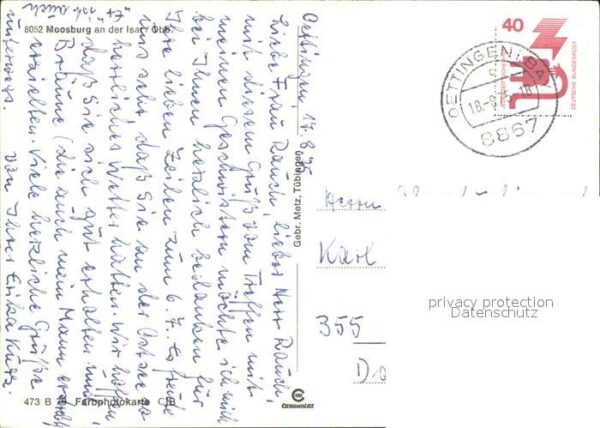 8052 Moosburg an der Isar / Obb.
Oettingen, 17.8.75
Liebe Frau Rauch, lieber Herr Rauch,
mit diesem Gruß vom Treffen mit
meinen Geschwistern möchte ich mich
bei Ihnen herzlich bedanken für
Ihre lieben Zeilen zum 6.7. Es freute
uns sehr, daß Sie an der Ostsee so
herrliches Wetter hatten. Wir hoffen,
daß Sie sich gut erholten und
Bräune (die auch mein Mann
erzielten. Viele herzliche Grüße
von Ihrer Erika
unterwegs.
ich auch
473 B 78 Farbphotokarte CJB
Gebr. Metz, Tübingen
CHROMOLUX
40
DEUTSCHE BUNDESPOST
OETTINGEN, BAY
18.-8.75-18
8867
Herrn
Karl
355
privacy protection
Datenschutz